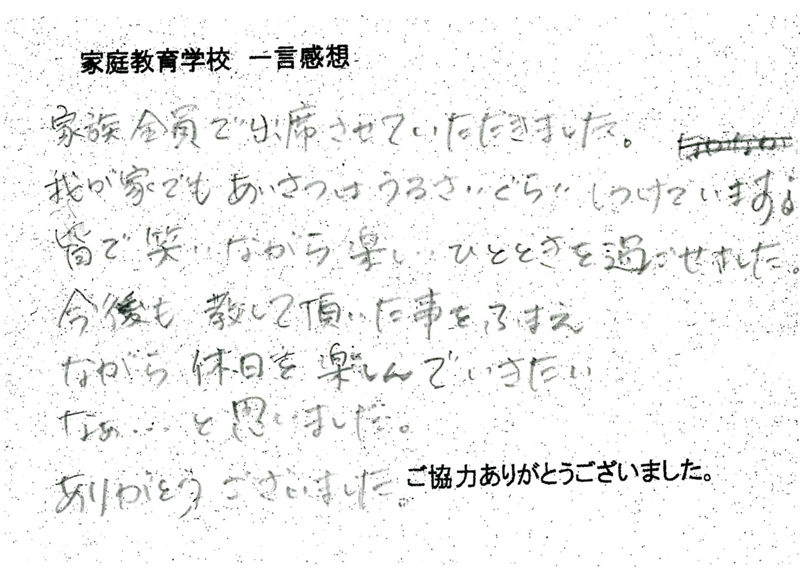 家庭教育学校 一言感想
家族全員で出席させていただきました。
我が家でもあいさつはうるさいぐらいしつけています
皆で笑いながら楽しいひとときを過ごせました。
今後も教えて頂いた事をふまえ
ながら休日を楽しんでいきたい
なぁ…と思いました。
ありがとうございました。
ご協力ありがとうございました。